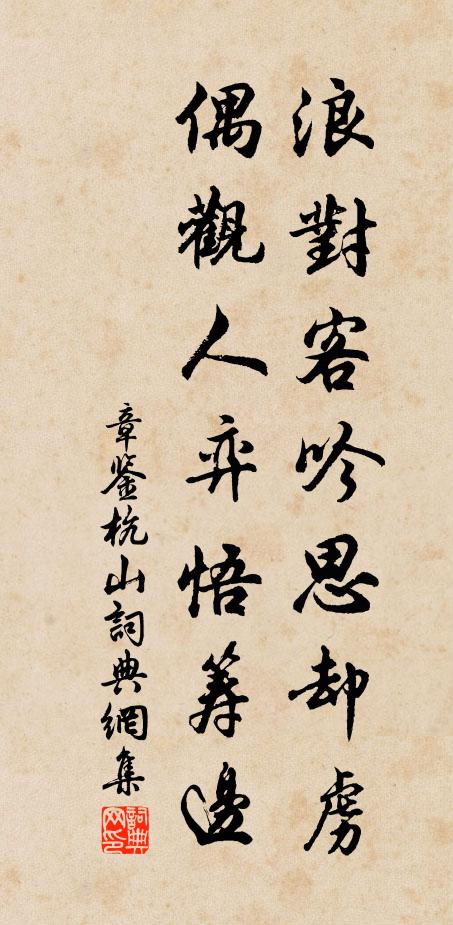 浪對客吟思却虜
偶觀人弈悟筹邊
章鉴杭山詞典網集
詞典网印